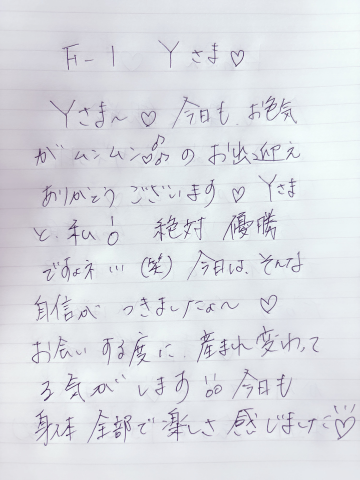 F-1 Yさま♡
Yさま〜♡ 今日も、お色気
がムンムン♡♡のお出迎え
ありがとうございます♡ Yさま
と、私! 絶対 優勝
ですよネ…(笑) 今日は、そんな
自信が つきましたよ〜 ♡
お会いする度に、産まれ変わって
る気がします!! 今日も
身体全部で楽しさ 感じました♡